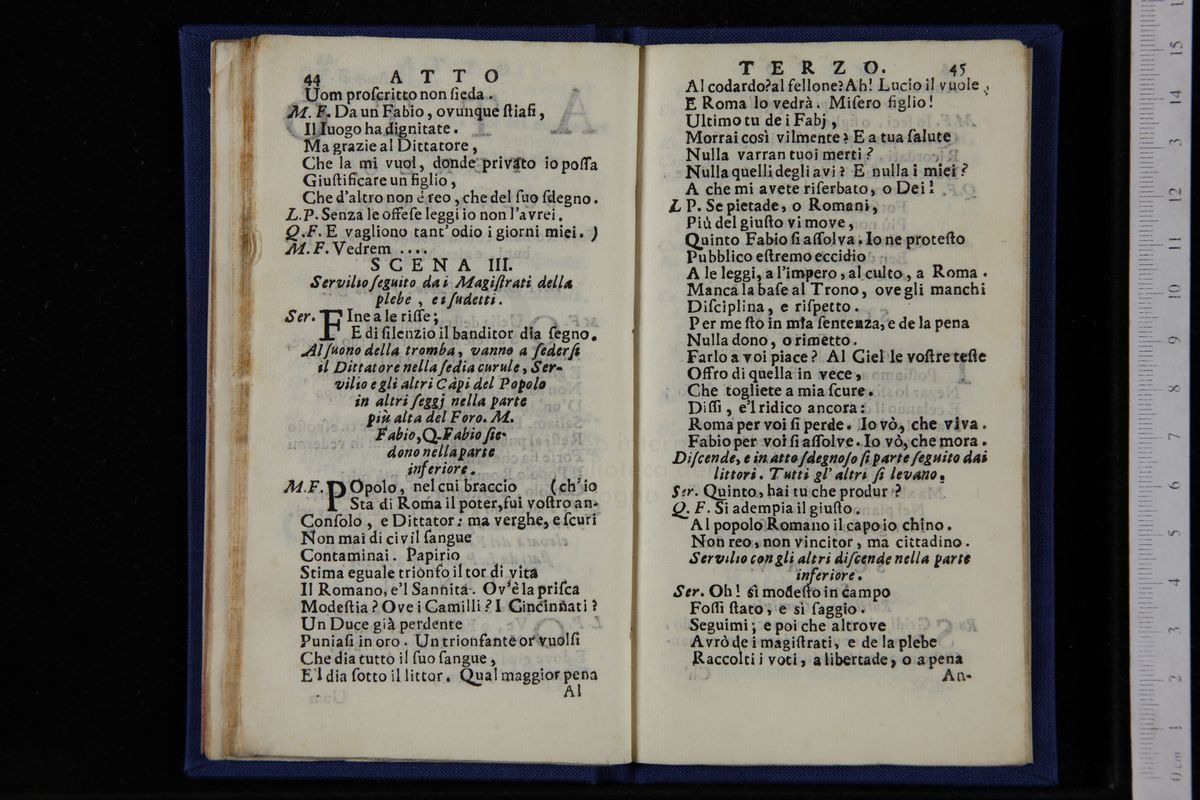 44 ATTO
Uom proſcritto non ſieda.
M. F. Da un Fabio, ovunque ſtiaſi,
Il luogo ha dignitate.
Ma grazie al Dittatore,
Che la mi vuol, donde privato io poſſa
Giuſtificare un figlio,
Che d'altro non è reo, che del ſuo ſdegno.
L. P. Senza le offeſe leggi io non l'avrei.
Q. F. E vagliono tant' odio i giorni miei. )
M. F. Vedrem ....
SCENA III.
Servilio ſeguito da i Magiſtrati della
plebe, e i ſudetti.
Ser. FIne a le riſſe;
E di ſilenzio il banditor dia ſegno.
Al ſuono della tromba, vanno a ſederſi
il Dittatore nella ſedia curule, Ser-
vilio e gli altri Capi del Popolo
in altri ſeggj nella parte
più alta del Foro. M.
Fabio, Q. Fabio ſie-
dono nella parte
inferiore.
M. F. POpolo, nel cui braccio (ch'io
Sta di Roma il poter, fui voſtro an-
Conſolo, e Dittator: ma verghe, e ſcuri
Non mai di civil ſangue
Contaminai. Papirio
Stima eguale trionfo il tor di vita
Il Romano, e'l Sannita. Ov'è la priſca
Modeſtia? Ove i Camilli? I Cincinnati?
Un Duce già perdente
Puniaſi in oro. Un trionfante or vuolſi
Che dia tutto il ſuo ſangue,
E'l dia ſotto il littor. Qual maggior pena
Al
TERZO. 45
Al codardo? al fellone? Ah! Lucio il vuole,
E Roma lo vedrà. Miſero figlio!
Ultimo tu de i Fabj,
Morrai così vilmente? E a tua ſalute
Nulla varran tuoi merti?
Nulla quelli degli avi? E nulla i miei?
A che mi avete riſerbato, o Dei!
L P. Se pietade, o Romani,
Più del giuſto vi move,
Quinto Fabio ſi aſſolva. Io ne proteſto
Pubblico eſtremo eccidio
A le leggi, a l'impero, al culto, a Roma.
Manca la baſe al Trono, ove gli manchi
Diſciplina, e riſpetto.
Per me ſto in mia ſentenza, e de la pena
Nulla dono, o rimetto.
Farlo a voi piace? Al Ciel le voſtre teſte
Offro di quella in vece,
Che togliete a mia ſcure.
Diſſi, e'l ridico ancora:
Roma per voi ſi perde. Io vò, che viva.
Fabio per voi ſi aſſolve. Io vò, che mora.
Diſcende, e in atto ſdegnoſo ſi parte ſeguito dai
littori. Tutti gl' altri ſi levano.
Ser. Quinto, hai tu che produr?
Q. F. Si adempia il giuſto.
Al popolo Romano il capo io chino.
Non reo, non vincitor, ma cittadino.
Servilio con gli altri diſcende nella parte
inferiore.
Ser. Oh! sì modeſto in campo
Foſſi ſtato, e sì ſaggio.
Seguimi; e poi che altrove
Avrò de i magiſtrati, e de la plebe
Raccolti i voti, a libertade, o a pena
An-
0 cm 1 2 3 4 5 6 7 8 9 10 11 12 13 14 15